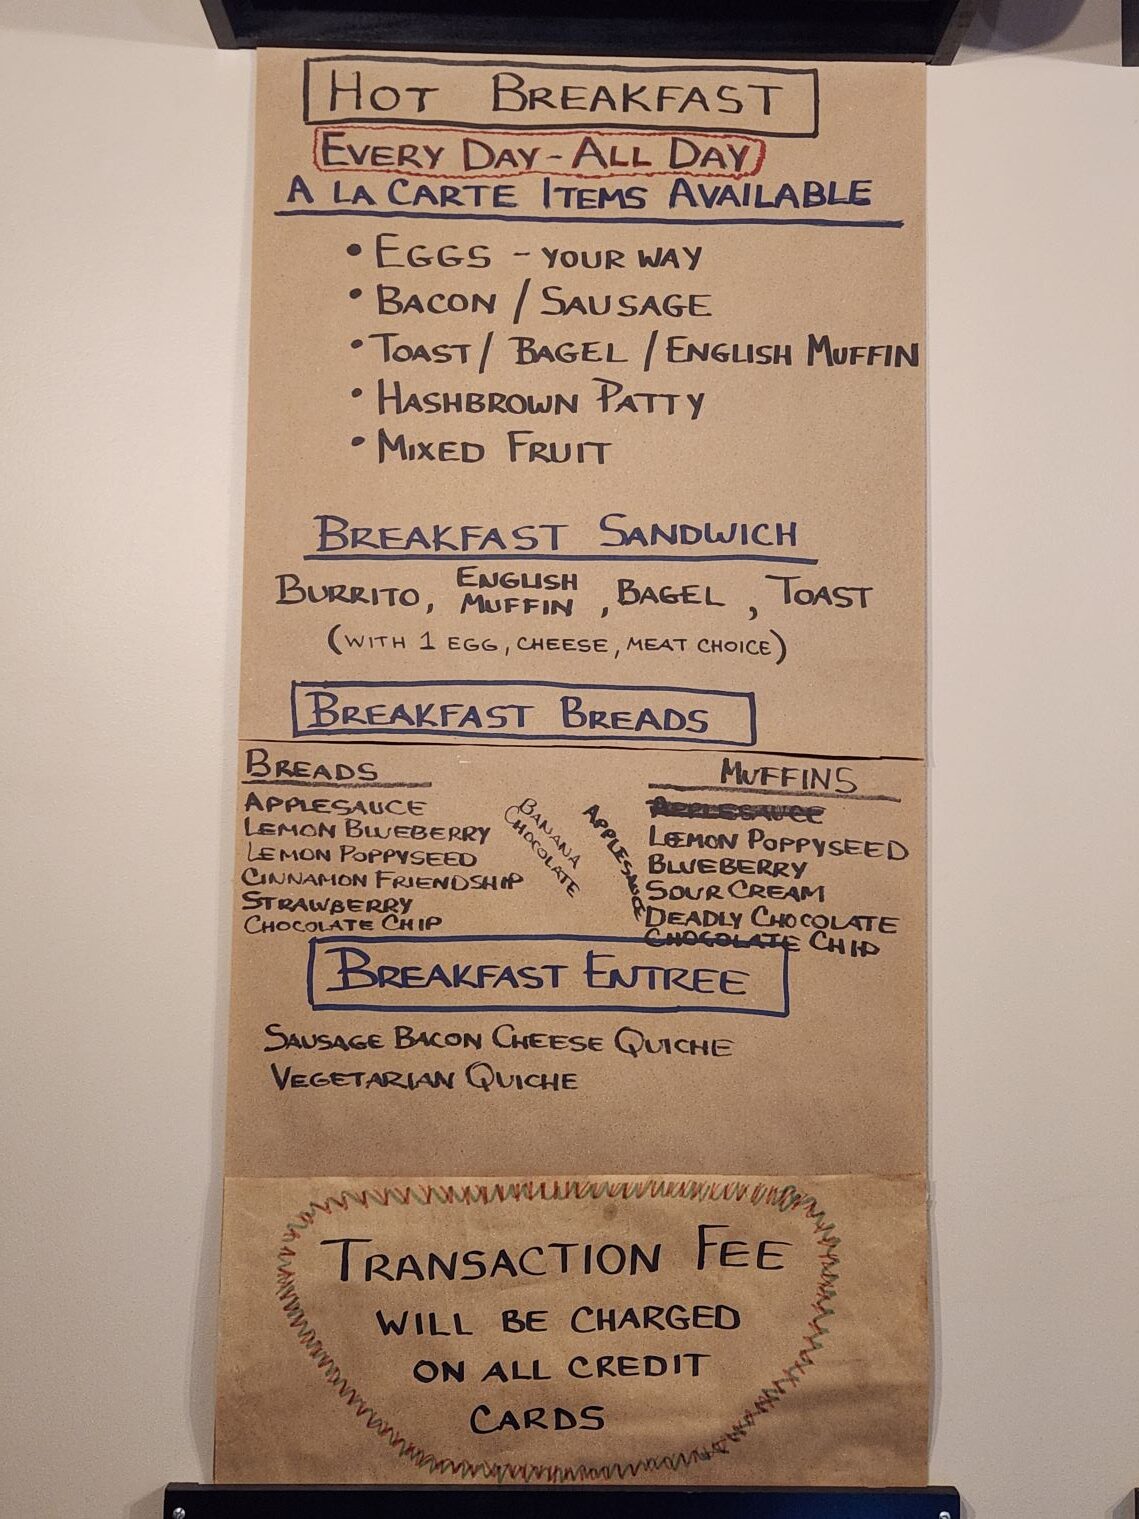 HOT BREAKFAST
EVERY DAY - ALL DAY
A LA CARTE ITEMS AVAILABLE
• EGGS - YOUR WAY
• BACON / SAUSAGE
• TOAST / BAGEL / ENGLISH MUFFIN
• HASHBROWN PATTY
• MIXED FRUIT
BREAKFAST SANDWICH
BURRITO, ENGLISH MUFFIN, BAGEL, TOAST
(WITH 1 EGG, CHEESE, MEAT CHOICE)
BREAKFAST BREADS
BREADS
APPLESAUCE
LEMON BLUEBERRY
LEMON POPPYSEED
CINNAMON FRIENDSHIP
STRAWBERRY
CHOCOLATE CHIP
BANANA
CHOCOLATE
MUFFINS
APPLESAUCE
APPLESAUCE
LEMON POPPYSEED
BLUEBERRY
SOUR CREAM
DEADLY CHOCOLATE
CHOCOLATE CHIP
BREAKFAST ENTREE
SAUSAGE BACON CHEESE QUICHE
VEGETARIAN QUICHE
TRANSACTION FEE
WILL BE CHARGED
ON ALL CREDIT
CARDS